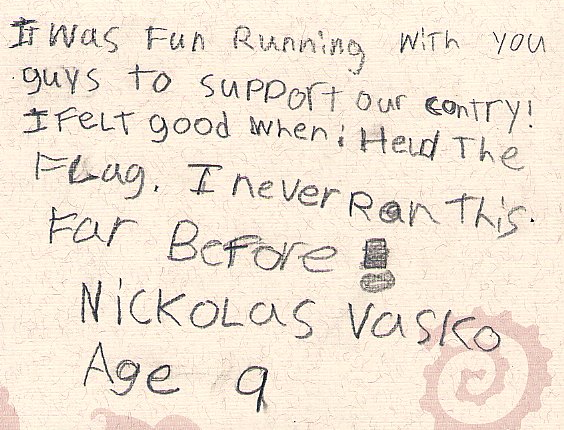 It was Fun Running with you
guys to support our contry!
I Felt good when i Held The
FLag. I never Ran This.
Far Before!
Nickolas Vasko
Age 9